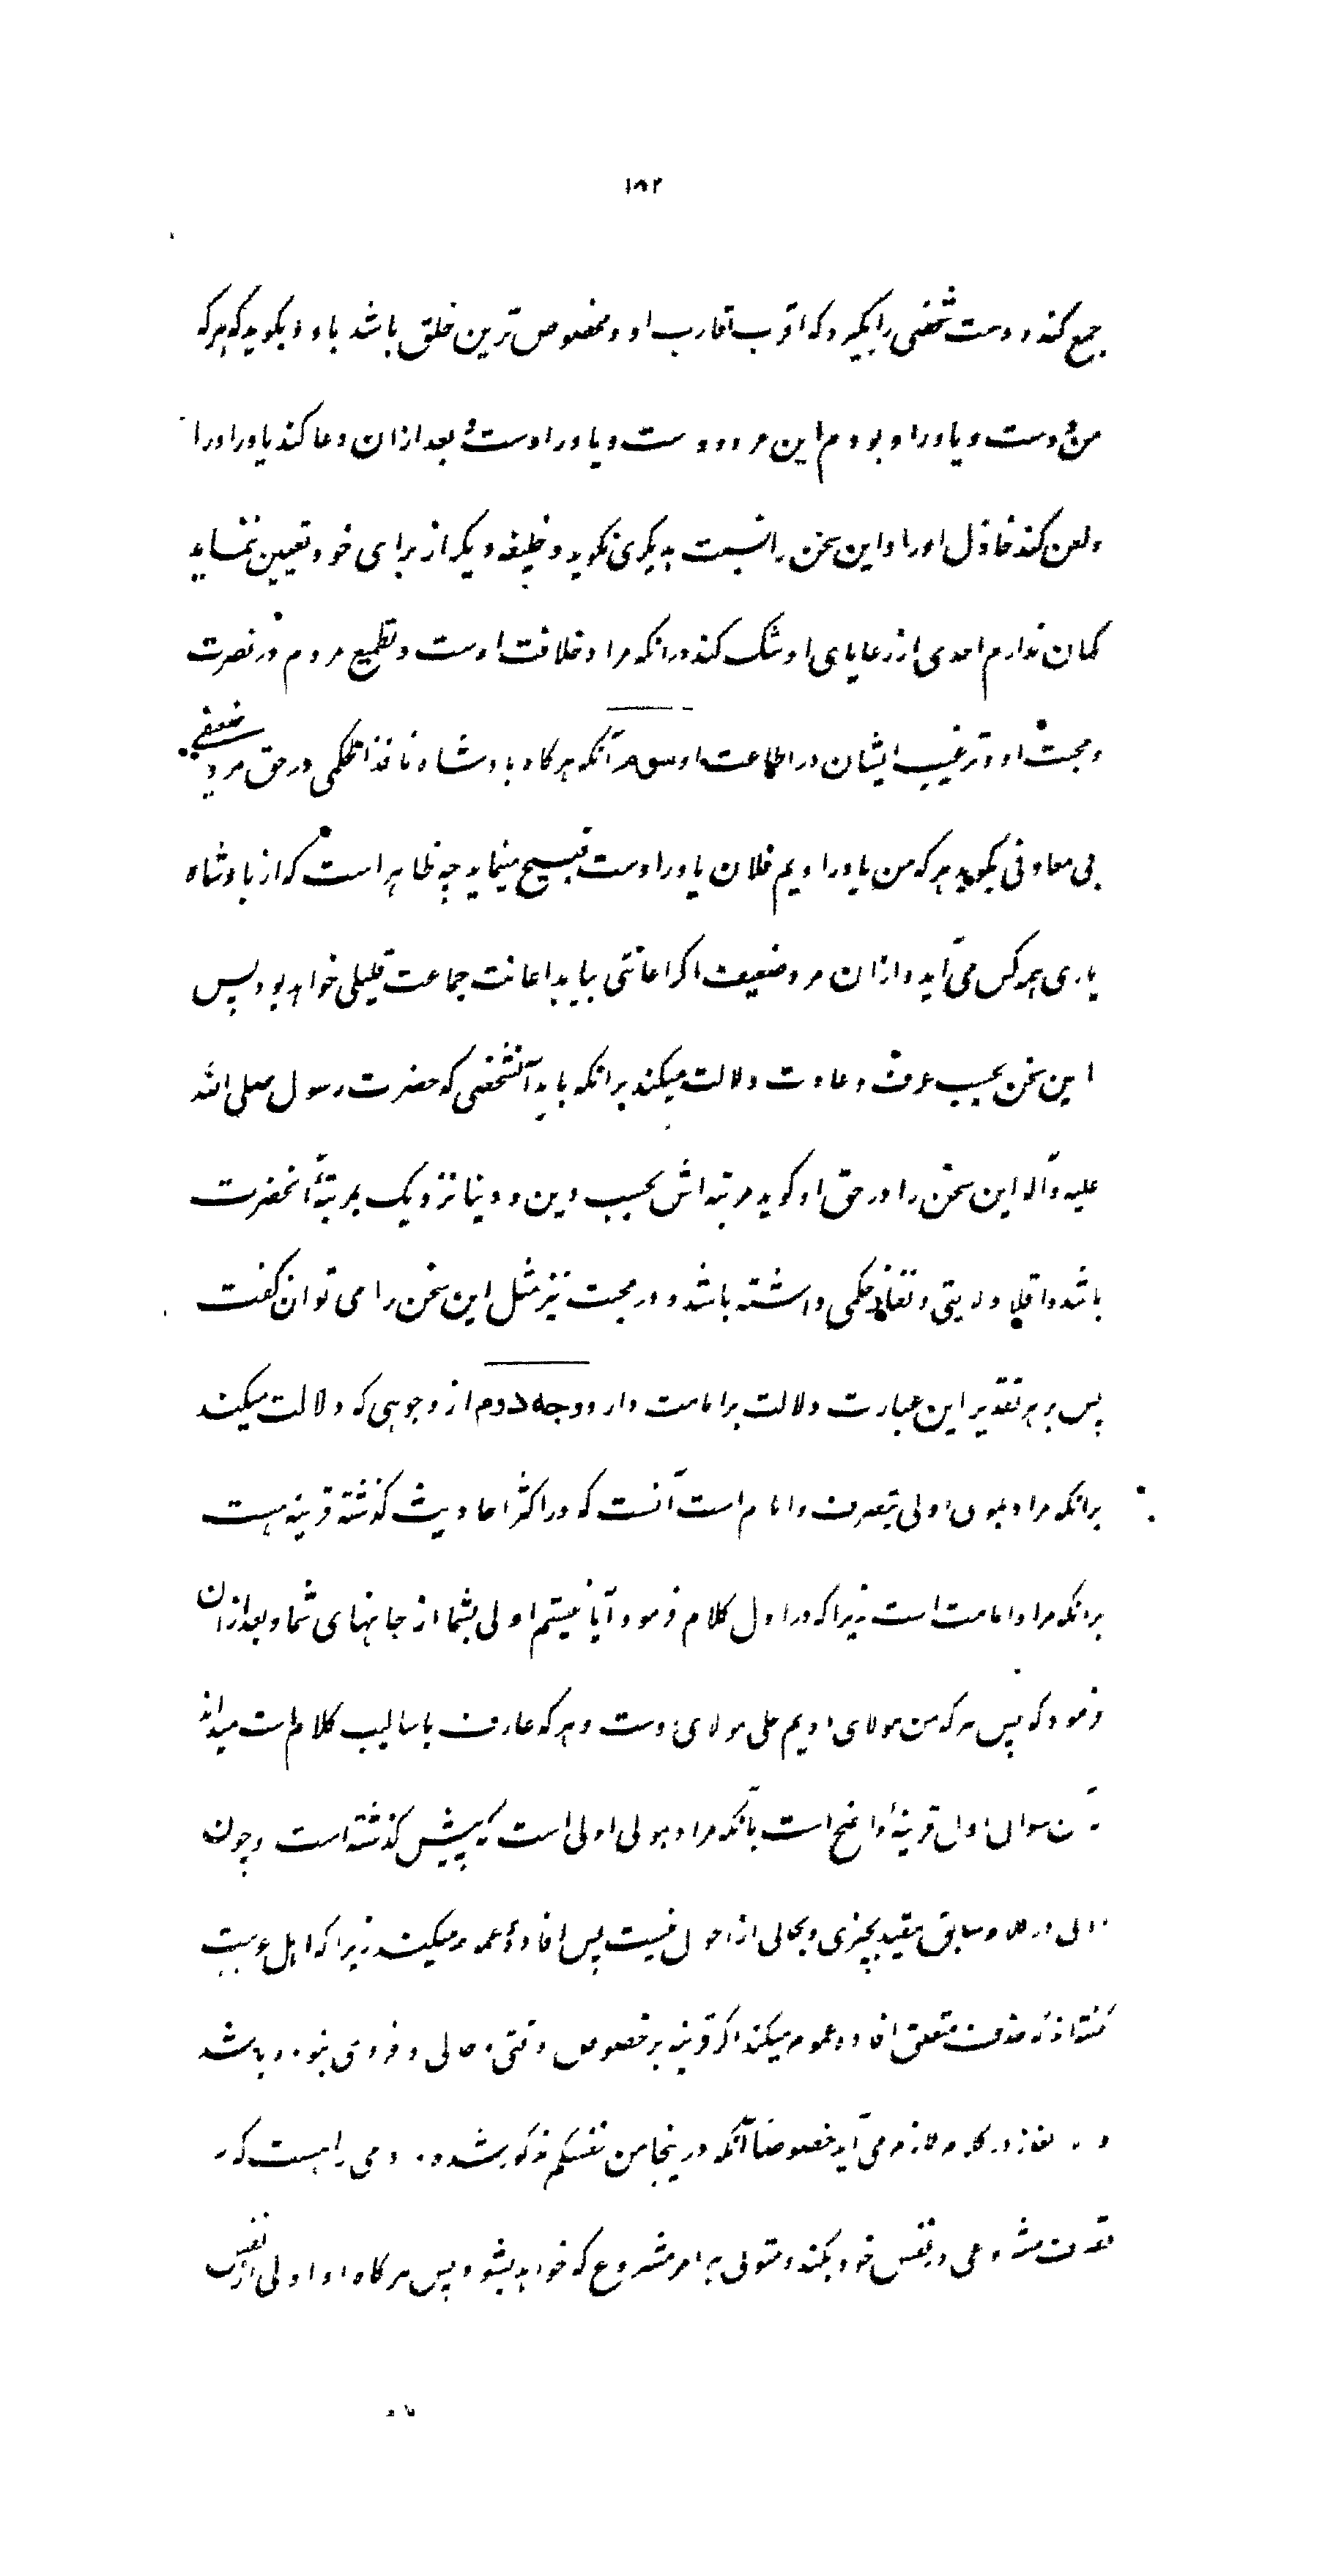 ۱۸۲
جمع کند و دست شخصی را بگیرد که اقرب اقارب او و مخصوص ترین خلق باشد باو و بگوید که هرکه
من دوست و یاور او بودم این مرد دوست و یاور اوست بعد ازان دعا کند یاور او را
و لعن کند خاذل او را و این سخن را نسبت بدیگری نگوید و خلیفه دیگر از برای خود تعیین ننماید
گمان ندارم احدی از رعایای او شک کند در انکه مراد خلافت اوست و تطمیع مردم در نصرت
و محبت او و ترغیب ایشان در اطاعت او سوم آنکه هرگاه بادشاه نافذ الحکمی در حق مرد ضعفی
بی معاونی بگوید هرکه من یاور اویم فلان یاور اوست قبیح مینماید چه ظاهر است که از بادشاه
یاری هرکس می آید و ازان مرد ضعیف اگر اعانتی بیاید اعانت جماعت قلیلی خواهد بود پس
این سخن بحسب عرف و عادت دلالت میکند برانکه باید آنشخصی که حضرت رسول صلی الله
علیه و آله این سخن را در حق او گوید مرتبه اش بحسب دین و دنیا نزدیک بمرتبهٔ آنحضرت
باشد و اقلا ولایتی و نفاذ حکمی داشته باشد و در محبت نیز مثل این سخن را می توان گفت
پس بر هر تقدیر این عبارت دلالت بر امامت دارد وجه دوم از وجوهی که دلالت میکند
برانکه مراد بمولی اولی بتصرف و امام است آنست که در اکثر احادیث گذشته قرینه هست
برانکه مراد امامت است زیرا که در اول کلام فرمود آیا نیستم اولی بشما از جانهای شما و بعد ازان
فرمود که پس هرکه من مولای اویم علی مولای اوست و هرکه عارف باسالیب کلام است میداند
که آن سوال اول قرینهٔ واضح است بآنکه مراد بمولی اولی است که پیش گذشته است و چون
اولی در کلام سابق مقید بچیزی و بحالی از احوال نیست پس افادهٔ عموم میکند زیرا که اهل عربیت
گفته اند که حذف متعلق افاده عموم میکند اگر قرینه بر خصوص وقتی و حالی و فردی نبوده باشد
و الا الغاز در کلام لازم می آید خصوصاً آنکه در اینجا من نفسکم مذکور شده و آدمی را هست که هر
تصرف مشروعی در نفس خود بکند و متولی هر امر مشروع که خواهد بشود پس هرگاه او اولی از نفس